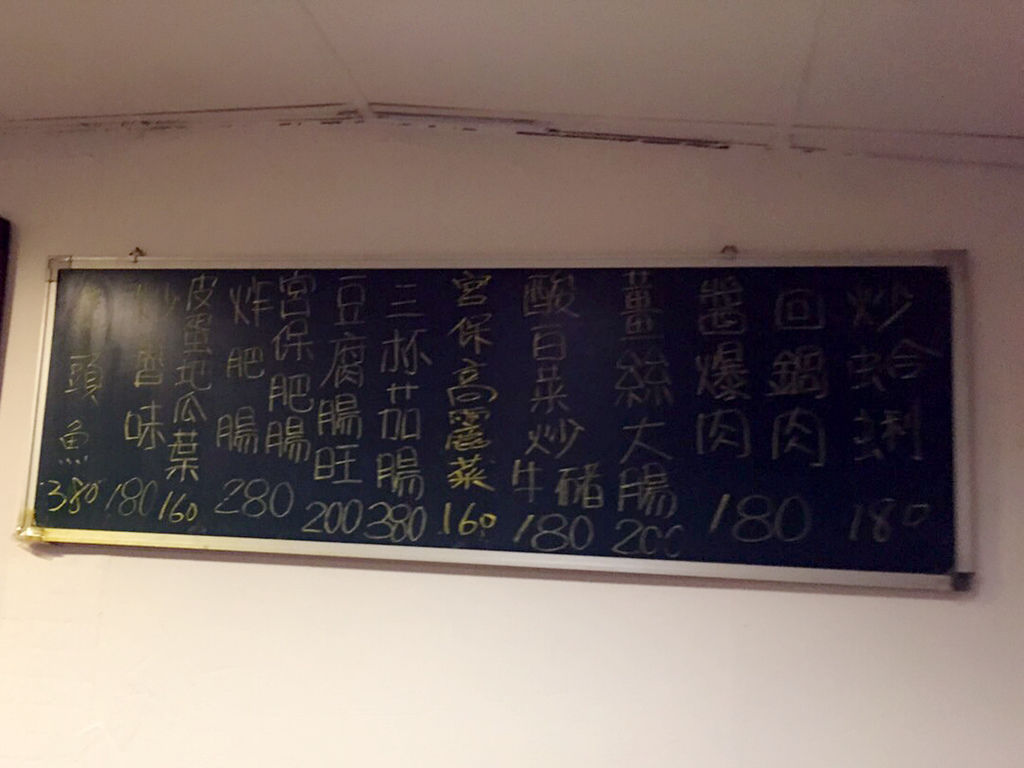 炒蛤蜊 180
回鍋肉
醬爆肉
180
薑絲大腸 200
酸白菜炒
牛 豬
180
宮保高麗菜 160
三杯茄腸 380
豆腐腸旺 200
宮保肥腸
炸肥腸
280
皮蛋地瓜葉 160
炒 味 180
頭魚 380